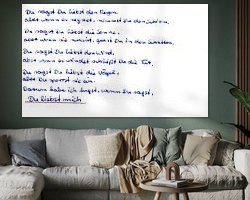 Du sagst Du liebst den Regen,
aber wenn es regnet, nimmst Du den Schirm.
Du sagst Du liebst die Sonne,
aber wenn sie scheint, gehst Du in den Schatten.
Du sagst Du liebst den Wind,
aber wenn es windet schließt Du die Tür.
Du sagst Du liebst die Vögel,
aber Du sperrst sie ein.
Darum habe ich Angst, wenn Du sagst,
Du liebst mich